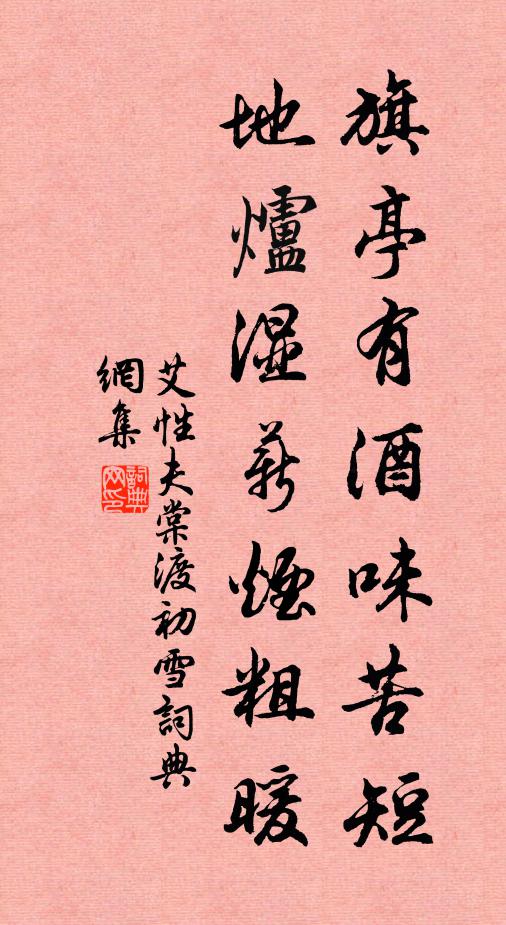 旗亭有酒味苦短
地爐湿薪煙粗暖
艾性夫棠渡初雪詞典
網集
詞典網印